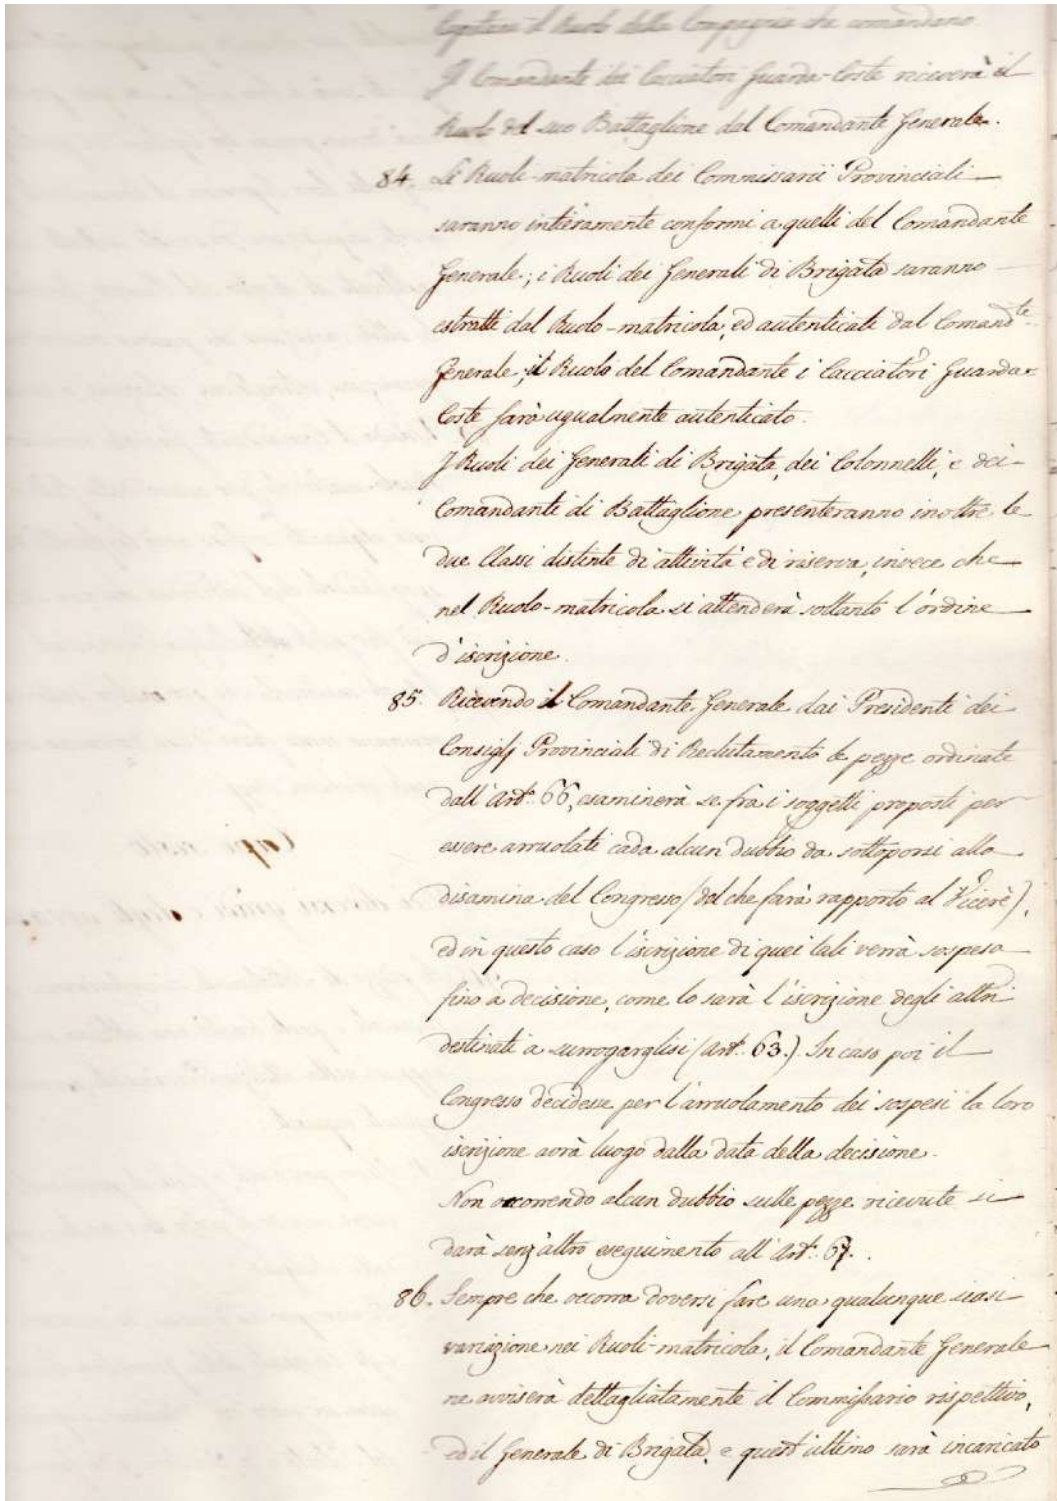 Capitani il Ruolo della Compagnia che comandano
Il Comandante dei Cacciatori Guarda-Coste riceverà il
Ruolo del suo Battaglione dal Comandante Generale.
84. Li Ruoli-matricola dei Commissarii Provinciali
saranno intieramente conformi a quelli del Comandante
Generale; i Ruoli dei Generali di Brigata saranno
estratti dal Ruolo-matricola, ed autenticati dal Comandte
Generale; il Ruolo del Comandante i Cacciatori Guarda-
Coste sarà ugualmente autenticato.
I Ruoli dei Generali di Brigata, dei Colonnelli, e dei
Comandanti di Battaglione presenteranno inoltre le
due Classi distinte di attività e di riserva, invece che
nel Ruolo-matricola si attenderà soltanto l'ordine
d'iscrizione.
85. Ricevendo il Comandante Generale dai Presidenti dei
Consiglj Provinciali di Reclutamento le pezze ordinate
dall'Art. 66, esaminerà se fra i soggetti proposti per
essere arruolati cada alcun dubbio da sottoporsi alla
disamina del Congresso (del che farà rapporto al Viceré),
ed in questo caso l'iscrizione di quei tali verrà sospesa
fino a decisione, come lo sarà l'iscrizione degli altri
destinati a surrogarglisi (Art. 63.) In caso poi il
Congresso decidesse per l'arruolamento dei sospesi la loro
iscrizione avrà luogo dalla data della decisione.
Non occorrendo alcun dubbio sulle pezze ricevute si
darà senz'altro eseguimento all'Art. 67.
86. Sempre che occorra doversi fare una qualunque siasi
variazione nei Ruoli-matricola, il Comandante Generale
ne avviserà dettagliatamente il Commissario rispettivo,
ed il Generale di Brigata, e quest'ultimo sarà incaricato